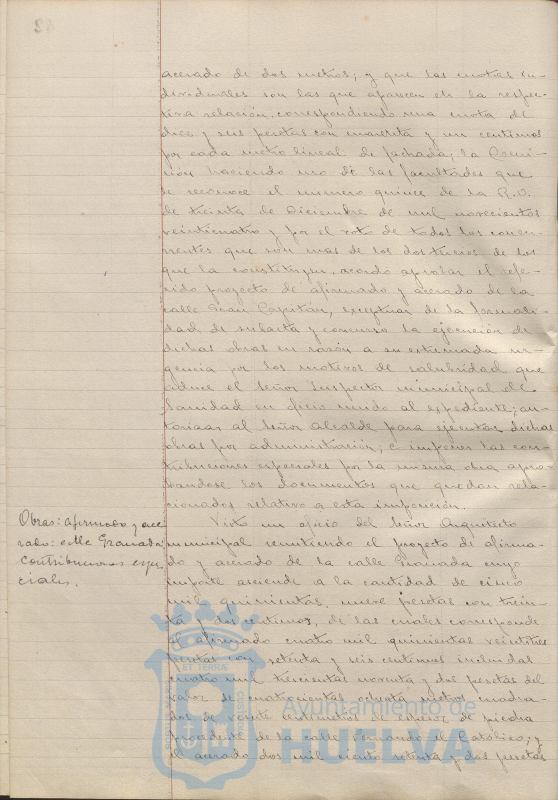 acerado de dos metros; y que las cuotas in-
dividuales son las que aparecen en la respec-
tiva relación, correspondiendo una cuota de
diez y seis pesetas con cuarenta y un centimos
por cada metro lineal de fachada; la Comi-
sión haciendo uso de las facultades que
le reconoce el número quince de la R.O.
de treinta de Diciembre de mil novecientos
veinticuatro y por el voto de todos los concu-
rrentes que son mas de los dos tercios de los
que la constituyen, acordó aprobar el refe-
rido proyecto de afirmado y acerado de la
calle Gran Capitán, exceptuar de la formali-
dad de subasta y concurso la ejecución de
dichas obras en razón a su extremada ur-
gencia por los motivos de salubridad que
aduce el Señor Inspector municipal de
Sanidad en oficio unido al expediente; au-
torizar al Señor Alcalde para ejecutar dichas
obras por administración, e imponer las con-
tribuciones especiales por la misma obra apro-
bandose los documentos que quedan rela-
cionados relativo a esta imposición.
Obras: afirmado y ace-
rado: calle Granada:
contribuciones espe-
ciales.
Visto un oficio del Señor Arquitecto
municipal remitiendo el proyecto de afirma-
do y acerado de la calle Granada cuyo
importe asciende a la cantidad de cinco
mil quinientas nueve pesetas con trein-
ta y dos centimos, de las cuales corresponde
al afirmado cuatro mil quinientas veintitres
pesetas con setenta y seis centimos incluidas
cuatro mil trescientas noventa y dos pesetas del
valor de cuatrocientos ochenta metros cuadra-
dos de veinte centimetros de espesor de piedra
procedente de la calle Fernando el Católico; y
el acerado dos mil ciento setenta y dos pesetas
Ayuntamiento de
HUELVA